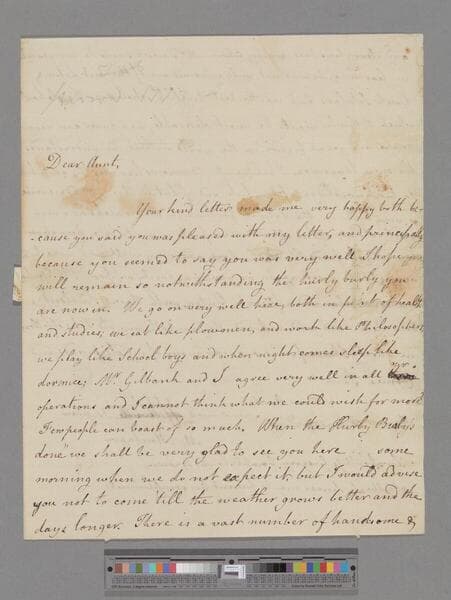 Dear Aunt,
Your kind letter made me very happy both be-
-cause you said you was pleased with my letter, and principally
because you seemed to say you was very well I hope you
will remain so notwithstanding the hurly burly you
are now in. We go on very well here, both in point of health
and studies, we eat like plowmen, and work like Philosophers
we play like School boys and when night comes sleep like
dormice; Mr Gilbank and I agree very well in all
operations and I cannot think what we could wish for more
Few people can boast of so much. When the Hurly Burly's
done" we shall be very glad to see you here some
morning when we do not expect it, but I would advise
you not to come 'till the weather grows better and the
days longer. There is a vast number of handsome &